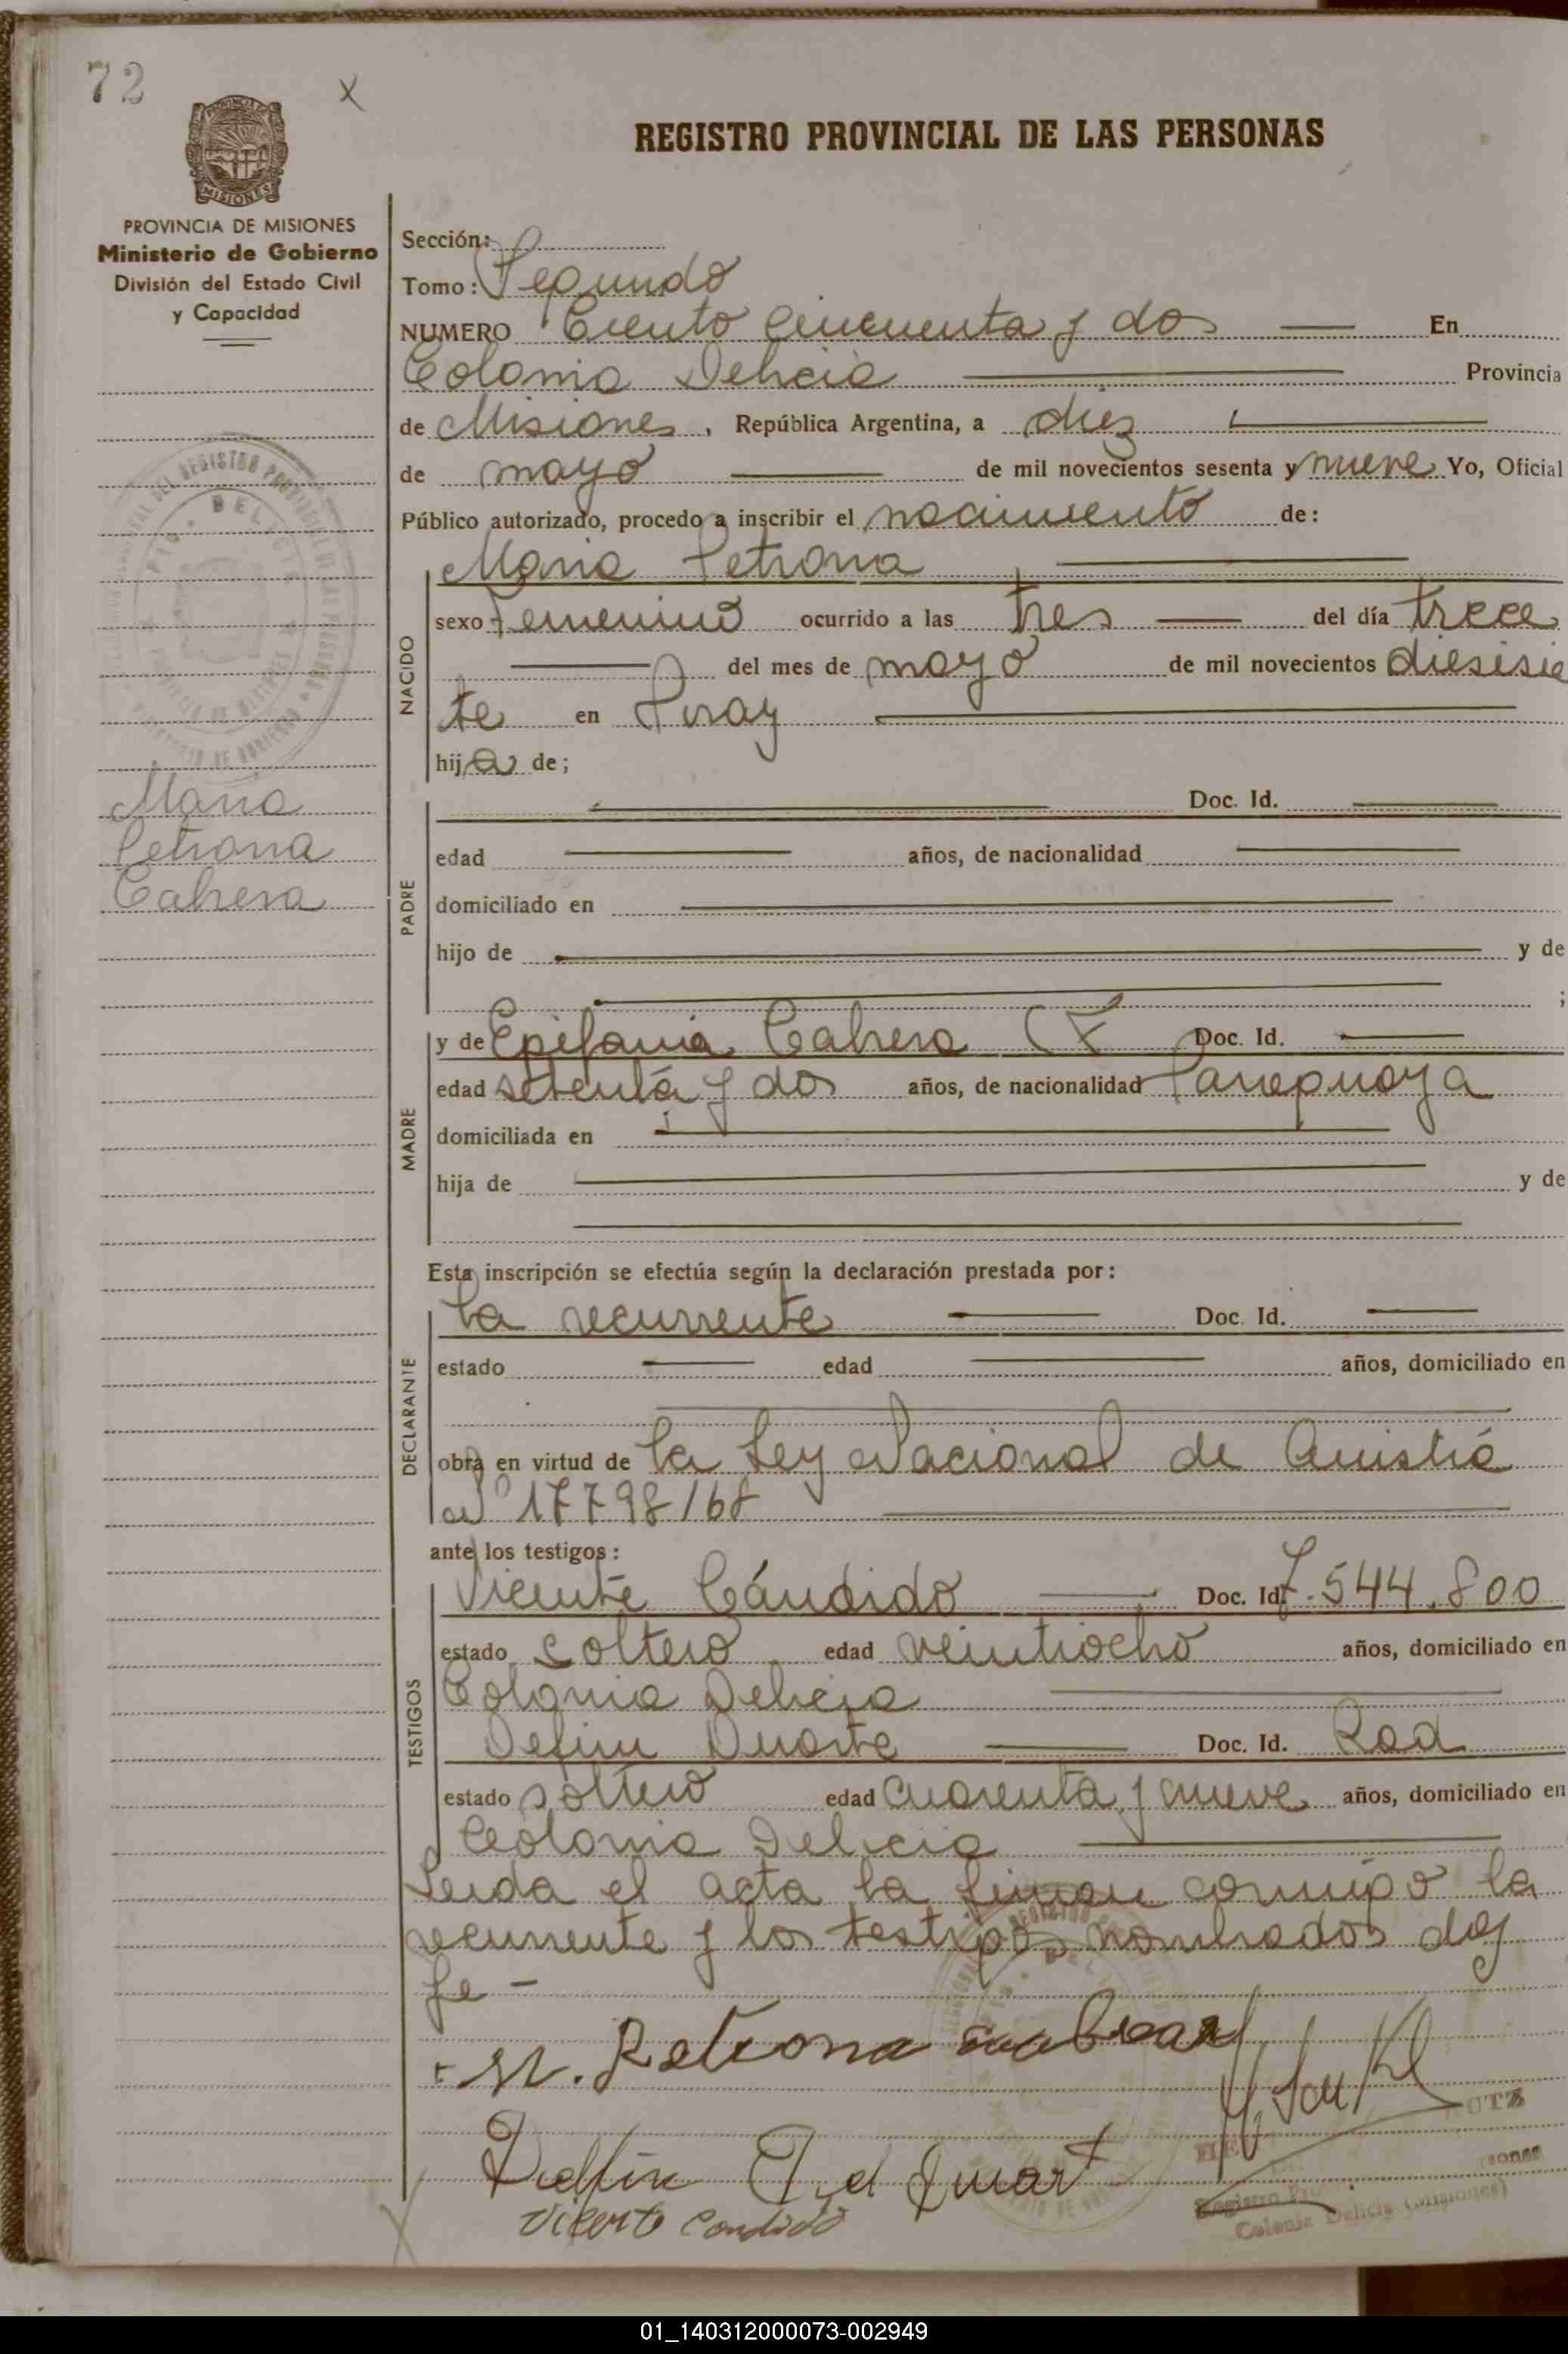 72
X
REGISTRO PROVINCIAL DE LAS PERSONAS
PROVINCIA DE MISIONES
Ministerio de Gobierno
División del Estado Civil
y Capacidad
Sección:
Tomo: Segundo
NUMERO Ciento Cincuenta y dos En
Colonia Delicia Provincia
de Misiones, República Argentina, a diez
de mayo de mil novecientos sesenta y nueve Yo, Oficial
Público autorizado, procedo a inscribir el nacimiento de:
NACIDO
Maria Petrona
sexo Femenino ocurrido a las tres del día trece
del mes de mayo de mil novecientos diesisie
te en Piray
hija de;
Maria
Petrona
Cabrera
PADRE
Doc. Id.
edad años, de nacionalidad
domiciliado en
hijo de y de
;
MADRE
y de Epifania Cabrera (F Doc. Id.
edad setenta y dos años, de nacionalidad Paraguaya
domiciliada en
hija de y de
Esta inscripción se efectúa según la declaración prestada por:
DECLARANTE
la recurrente Doc. Id.
estado edad años, domiciliado en
obra en virtud de la Ley Nacional de Amistia
Nº 17798/68
ante los testigos:
TESTIGOS
Vicente Cándido Doc. Id. 7.544.800
estado soltero edad veintiocho años, domiciliado en
Colonia Delicia
Delfin Duarte Doc. Id.
estado soltero edad cuarenta y nueve años, domiciliado en
Colonia Delicia
Leida el acta la firman conmigo la
recurrente y los testigos nombrados doy
fe -
M. Petrona
Delfin
Vicente Candido
Colonia Delicia (Misiones)
01_140312000073-002949